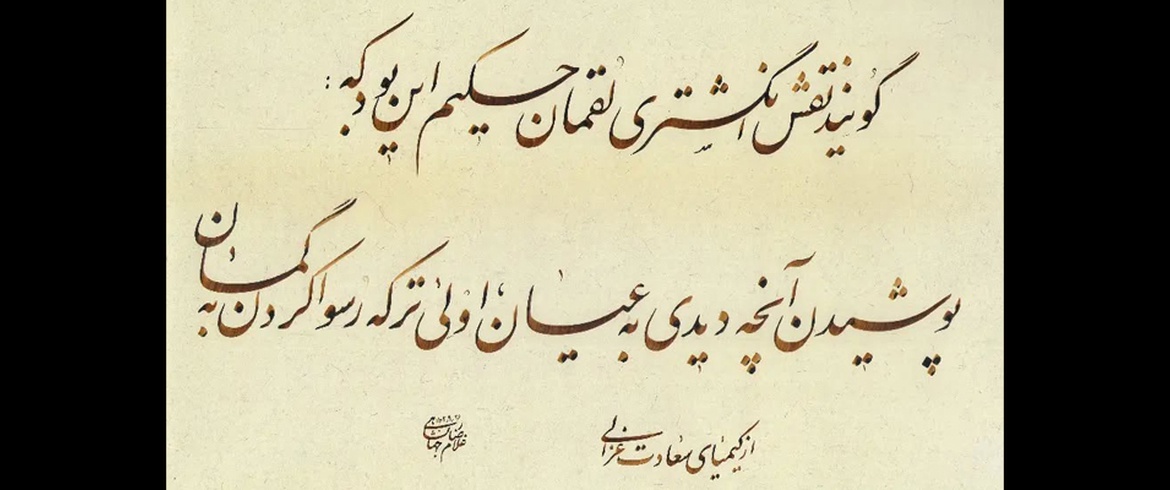 گویند نقش انگشتری لقمان حکیم این بود که:
پوشیدن آنچه دیدی به عیان، اولیٰ تر که رسوا کردن به گمان
از کیمیای سعادت غزالی
غلامرضا جهانشاهی